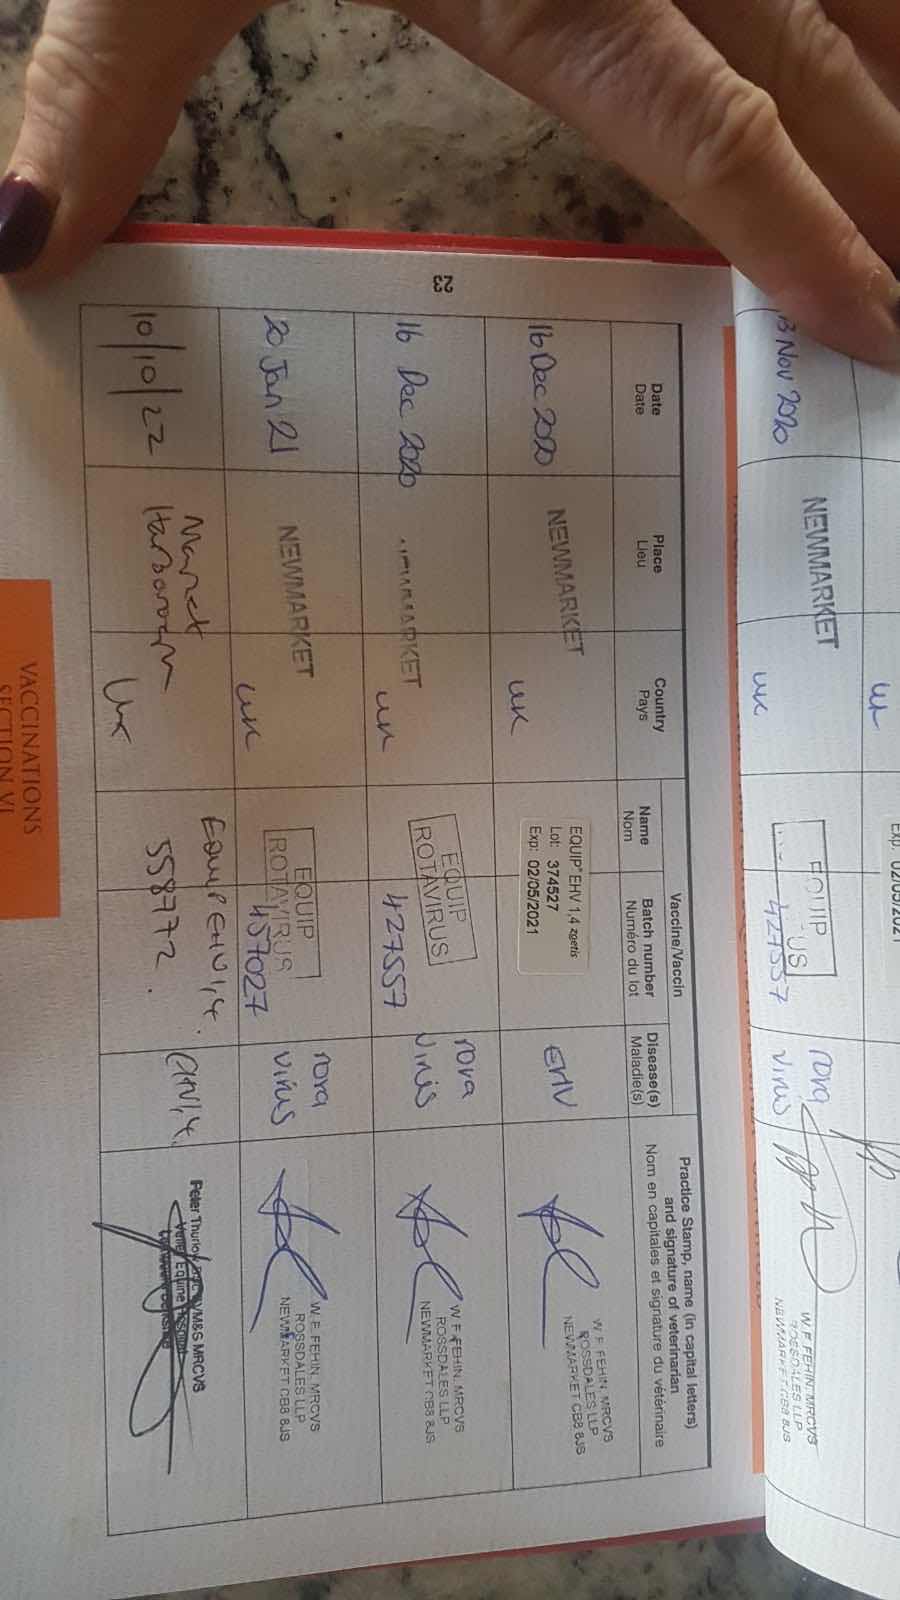 13 Nov 2020
NEWMARKET
UK
UK
EQUIP
427557
rota
virus
W. F. FEHIN, MRCVS
ROSSDALES LLP
NEWMARKET CB8 8JS
Exp: 02/05/2021
Date
Date
Place
Lieu
Country
Pays
Vaccine/Vaccin
Name
Nom
Batch number
Numéro du lot
Disease(s)
Maladie(s)
Practice Stamp, name (in capital letters)
and signature of veterinarian
Nom en capitales et signature du vétérinaire
16 Dec 2020
NEWMARKET
UK
EQUIP® EHV 1,4 zoetis
Lot: 374527
Exp: 02/05/2021
EHV
W F FEHIN, MRCVS
ROSSDALES LLP
NEWMARKET CB8 8JS
16 Dec 2020
NEWMARKET
UK
EQUIP
ROTAVIRUS
427557
rota
virus
W F FEHIN, MRCVS
ROSSDALES LLP
NEWMARKET CB8 8JS
20 Jan 21
NEWMARKET
UK
EQUIP
ROTAVIRUS
457027
rota
virus
W. F. FEHIN, MRCVS
ROSSDALES LLP
NEWMARKET CB8 8JS
10/10/22
Market
Harborough
UK
Equip EHV1,4.
558772.
EHV1,4.
Peter Thurlow VM&S MRCVS
Equine Hospital
23
VACCINATIONS
SECTION VI